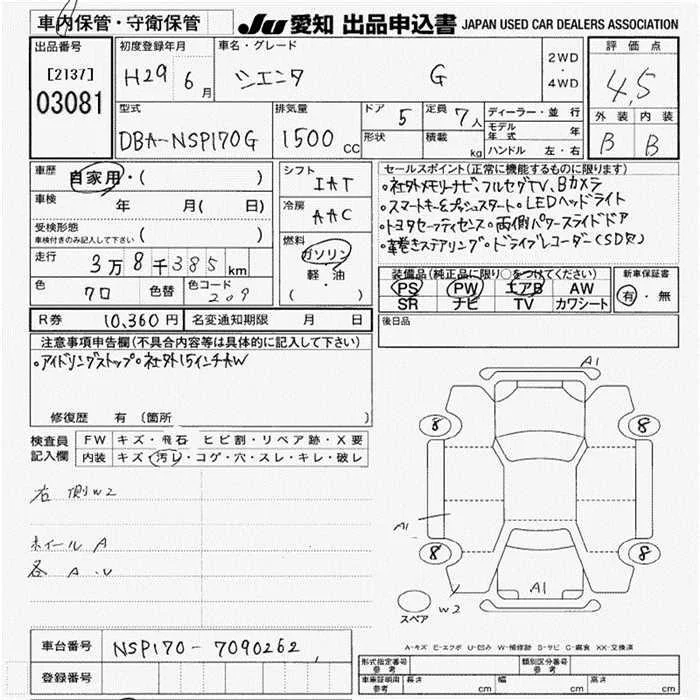 車内保管・守衛保管
JU 愛知 出品申込書 JAPAN USED CAR DEALERS ASSOCIATION
出品番号
[2137]
03081
初度登録年月
H29 6月
車名・グレード
シエンタ G
2WD
・
4WD
評価点
4.5
外装 内装
B B
型式
DBA-NSP170G
排気量
1500 cc
ドア 5
定員 7人
形状
積載 kg
ディーラー・並行
モデル年式 年
ハンドル 左・右
車歴
自家用・( )
車検 年 月( 日)
受検形態
車検付きのみ記入して下さい ( )
走行
3万8千385km
色 クロ 色替 色コード 209
シフト
IAT
冷房
AAC
燃料
ガソリン
軽・油
( )
セールスポイント(正常に機能するものに限ります)
・社外メモリーナビ、フルセグTV、Bカメラ
・スマートキー&プッシュスタート・LEDヘッドライト
・トヨタセーフティセンス・両側パワースライドドア
・革巻きステアリング・ドライブレコーダー(SD欠)
装備品(純正品に限り○をつけてください)
PS PW エアB AW
SR ナビ TV カワシート
新車保証書
有・無
R券 10,360円 名変通知期限 月 日
後日品
注意事項申告欄(不具合内容等は具体的に記入して下さい)
・アイドリングストップ・社外15インチAW
修復歴 有 〔箇所 〕
検査員記入欄
FW キズ・飛石 ヒビ割・リペア跡・X要
内装 キズ・汚レ・コゲ・穴・スレ・キレ・破レ
右 側 W2
ホイール A
各 A.U
A1
8 8
A1
8 8
A1
スペア
W2
A-キズ E-エクボ U-凹み W-補修跡 S-サビ C-腐食 XX-交換済
車台番号 NSP170-7090262
登録番号
形式指定番号 参考
類別区分番号 参考
車庫証明用 参考 長さ cm 幅 cm 高さ cm